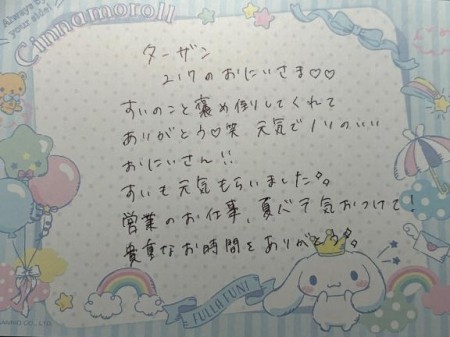 Always by your side!
Cinnamoroll
ターザン
217のおにいさま♡♡
すいのこと褒め倒してくれて
ありがとう♡笑 元気でノリのいい
おにいさん!!
すいも元気もらいました。
営業のお仕事、夏バテ気おつけて!
貴重なお時間をありがとう。
FULL A FUN!
SANRIO CO., LTD.